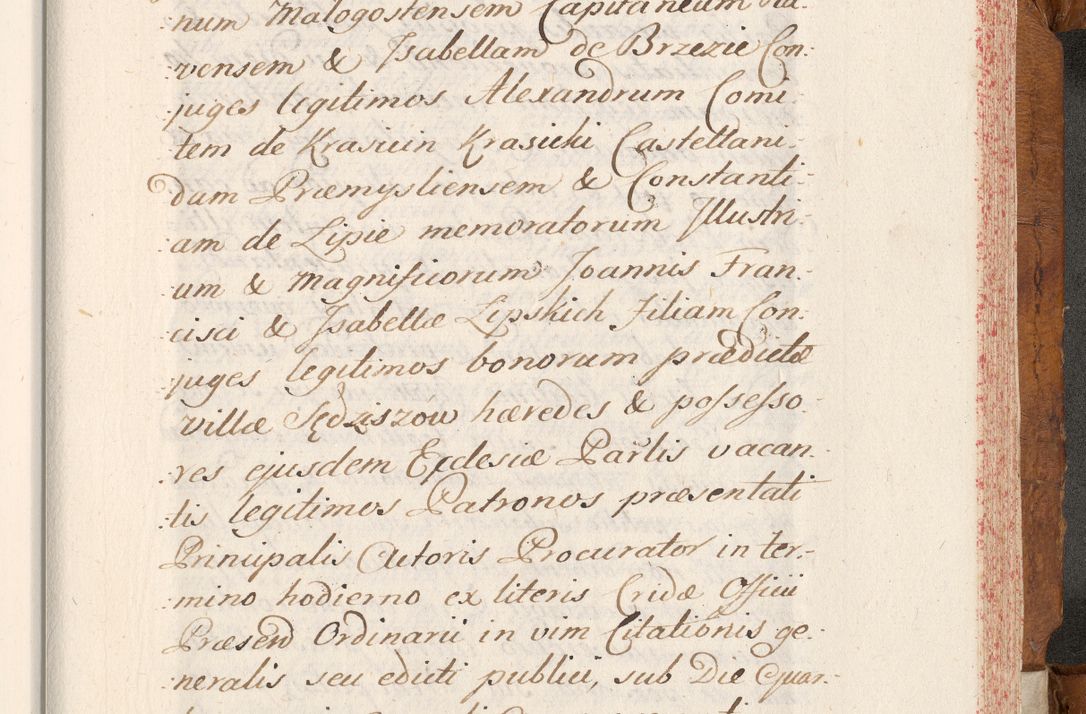 num Malogostensem Capitaneum
vensem & Isabellam de Brzezie Con-
juges legitimos Alexandrum Comi-
tem de Krasiciin Krasicki Castellani-
dam Præmysliensem & Constanti-
am de Lipie memoratorum Illustri-
um & Magnificorum Joannis Fran-
cisci & Isabellæ Lipskich Filiam Con-
juges legitimos bonorum prædictæ
villæ Sędzszow hæredes & possesso-
res ejusdem Ecclesiæ Parlis vacan-
tis legitimos Patronos præsentati
Principalis Actoris Procurator in ter-
mino hodierno ex literis Cridæ Officii
Præsend Ordinarii in vim Citationis ge-
neralis seu edicti publici, sub Die Quar-